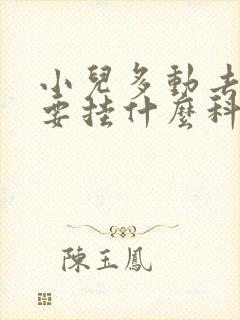 小兒多動去
要挂什麼科
陳玉鳳